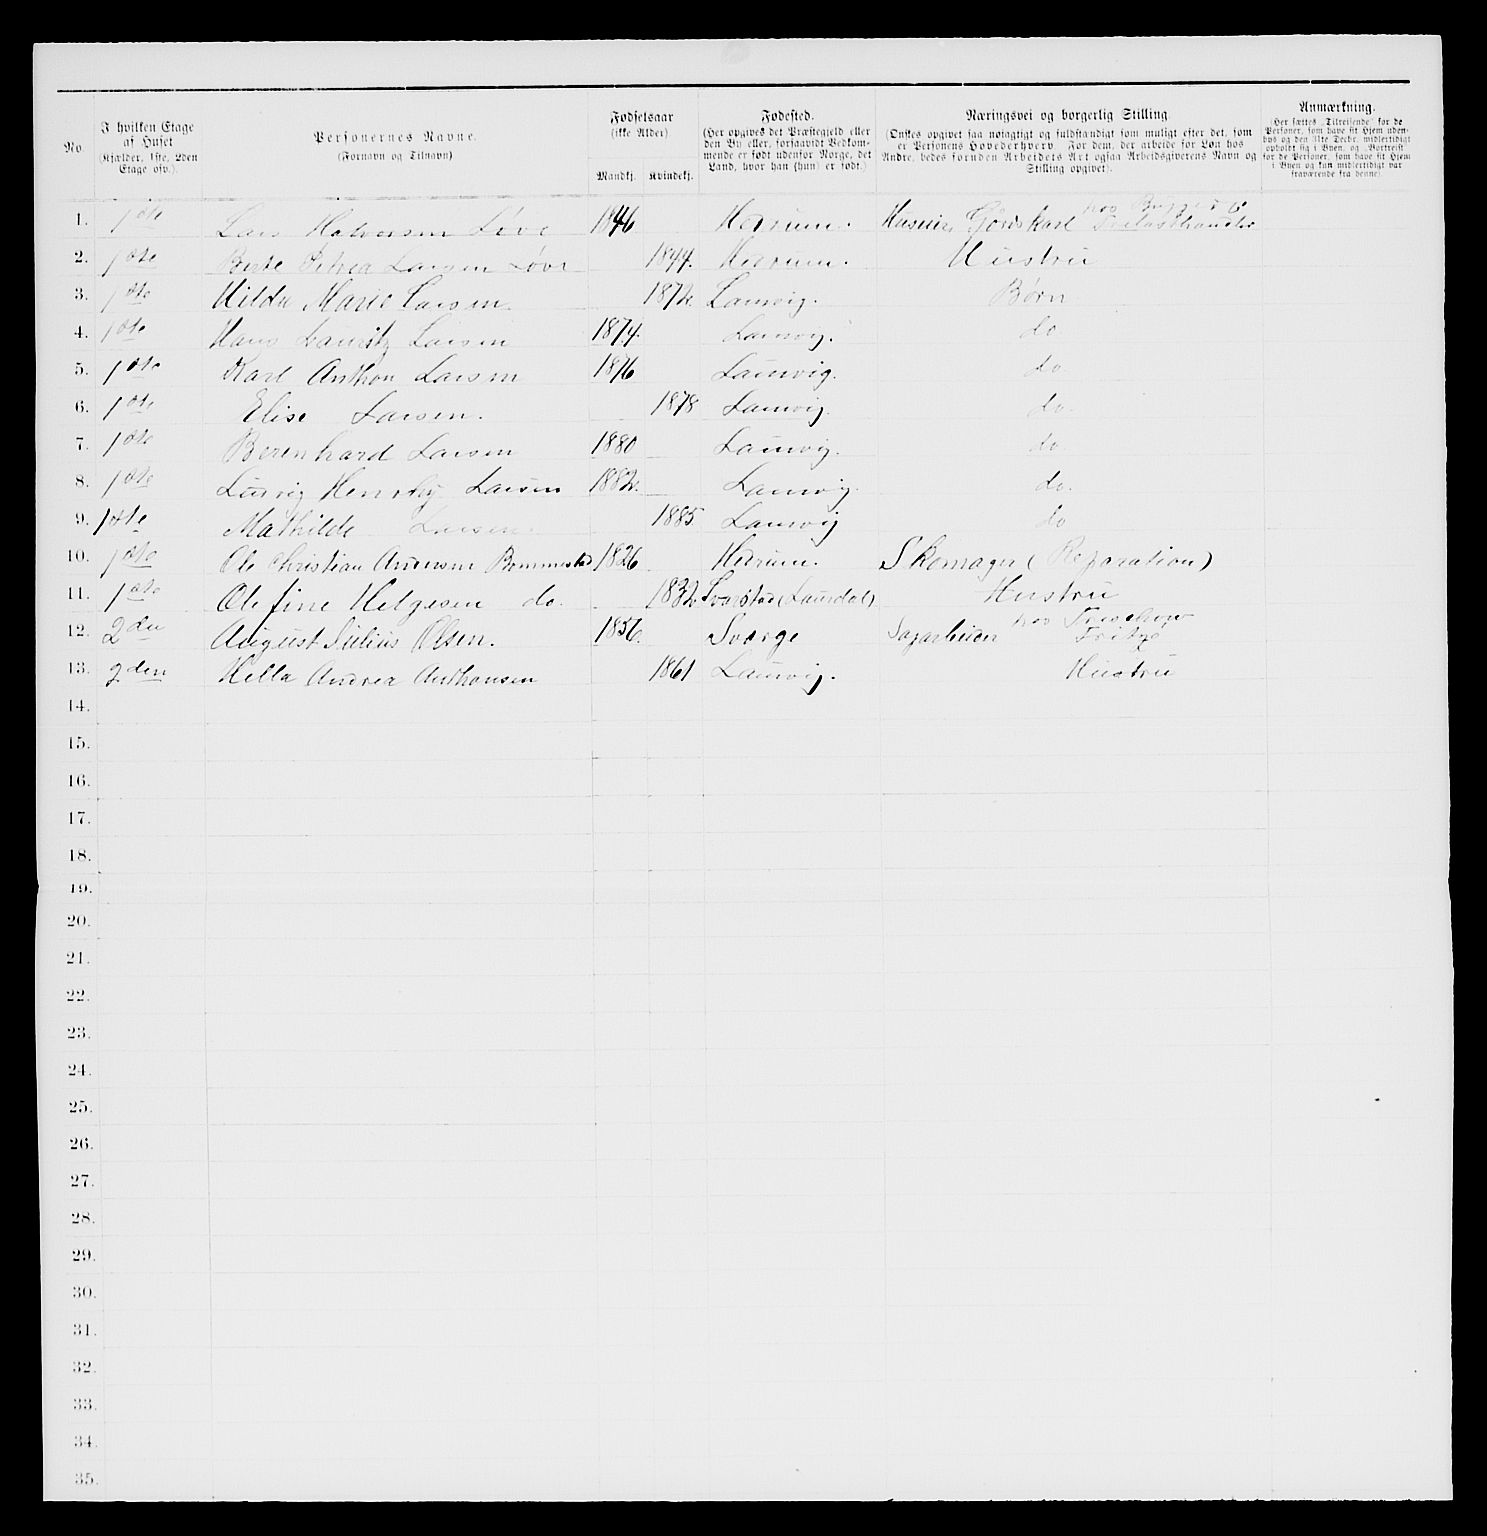 No.
I hvilken Etage
af Huset
(Kjælder, 1ste, 2den
Etage osv.).
Personernes Navne.
(Fornavn og Tilnavn)
Fødselsaar
(ikke Alder)
Mandkj. Kvindekj.
Fødested.
(Her opgives det Præstegjeld eller
den By eller, forsaavidt Vedkom-
mende er født udenfor Norge, det
Land, hvor han (hun) er født.)
Næringsvei og borgerlig Stilling.
(Ønskes opgivet saa nøiagtigt og fuldstændigt som muligt efter det, som
er Personens Hovederhverv. For dem, der arbeide for Løn hos
Andre, bedes foruden Arbeidets Art ogsaa Arbeidsgiverens Navn og
Stilling opgivet).
Anmærkning.
(Her sættes „Tilreisende“ for de
Personer, som have sit Hjem uden-
bys og den 31te Decbr. midlertidigt
opholdt sig i Byen, og „Bortreist“
for de Personer, som have sit Hjem
i Byen og kun midlertidigt var
fraværende fra denne).
1. 1ste Lars Halvorsen Løve 1846 Hedrum. Huseier, Gårdskarl hos Bugge & C° Trælasthandler
2. 1ste Berte Petrea Larsen Løve 1844. Hedrum. Hustru
3. 1ste Hilda Marie Larsen 1872. Laurvig. Børn
4. 1ste Hans Lauritz Larsen 1874. Laurvig. do
5. 1ste Karl Anthon Larsen 1876 Laurvig. do.
6. 1ste Elise Larsen. 1878 Laurvig. do.
7. 1ste Berenhard Larsen 1880 Laurvig. do
8. 1ste Ludvig Henrky Larsen 1882. Laurvig. do.
9. 1ste Mathilde Larsen 1885 Laurvig do
10. 1ste Ole Christian Andersen Bommestad 1826 Hedrum. Skomager (Reparation)
11. 1ste Olefine Helgesen do. 1832 Svarstad (Laurdal) Hustru
12. 2den August Julius Olsen. 1856. Sverge Sagarbeider hos Treschow Fritzø
13. 2den Hella Andrea Anthonsen 1861 Laurvig. Hustru
14.
15.
16.
17.
18.
19.
20.
21.
22.
23.
24.
25.
26.
27.
28.
29.
30.
31.
32.
33.
34.
35.